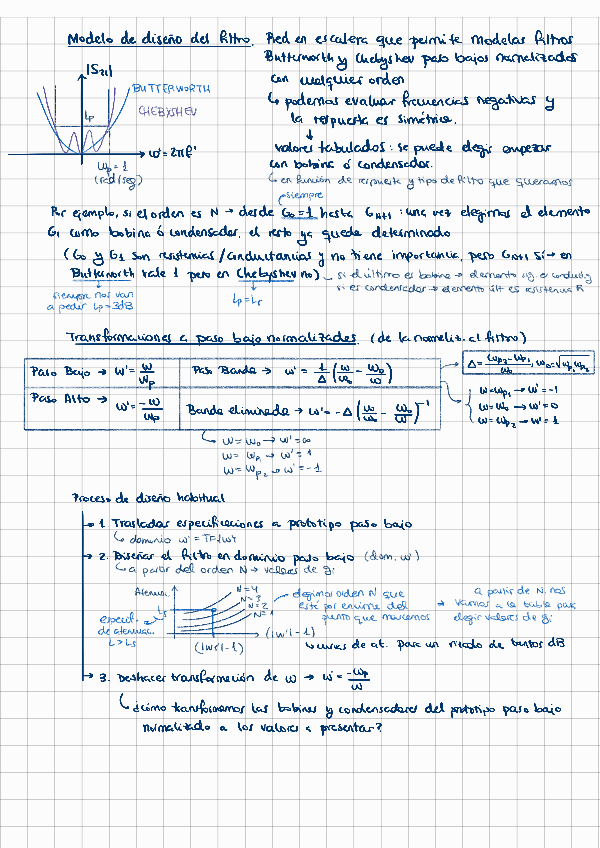 Modelo de diseño del filtro. Red en escalera que permite modelas filtros
Butterworth y Chebyshev paso bajos normalizados
con cualquier orden
↳ podemos evaluar frecuencias negativas y
la respuesta es simétrica.
↓
valores tabulados: se puede elegir empezar
con bobina ó condensador.
↳ en función de respuesta y tipo de filtro que queramos
|S21|
BUTTERWORTH
CHEBYSHEV
Lp
w' = 2πf'
Wp = 1
(rad/seg)
siempre
Por ejemplo, si el orden es N → desde G0=1 hasta GN+1: una vez elegimos el elemento
G1 como bobina ó condensador, el resto ya queda determinado
(G0 y G1 son resistencias/conductancias y no tiene importancia, pero GN+1 sí → en
Butterworth vale 1 pero en Chebyshev no)
si el último es bobina → elemento sig. e conduct.
si es condensador → elemento últ es resistencia R
siempre nos van
a pedir Lp=3dB
Lp=Lr
Transformaciones a paso bajo normalizados. (de la normaliz. al filtro)
Paso Bajo → w' = w/wp
Paso Banda → w' = 1/Δ (w/w0 - w0/w)
Δ = (wp2 - wp1)/w0, w0=√wp1 wp2
Paso Alto → w' = -w/wp
Banda eliminada → w' = -Δ (w/w0 - w0/w)^-1
w=wp1 → w'=-1
w=w0 → w'=0
w=wp2 → w'=1
↳ w=w0 → w'=∞
w=wp1 → w'=1
w=wp2 → w'=-1
Proceso de diseño habitual
→ 1. Trasladar especificaciones a prototipo paso bajo
↳ dominio w' =
→ 2. Diseñar el filtro en dominio paso bajo (dom. w')
↳ a partir del orden N → valores de gi
Atenuac.
Ls
N=4
N=3
N=2
N=1
especif.
de atenuac.
L>Ls
(|w'|-1)
(|w'|-1)
elegimos orden N que
esté por encima del
punto que marcamos
→ a partir de N, nos
vamos a la tabla para
elegir valores de gi
↳ curvas de at. para un rizado de tantos dB
→ 3. Deshacer transformación de w → w' = -wp/w
↳ ¿cómo transformamos las bobinas y condensadores del prototipo paso bajo
normalizado a los valores a presentar?